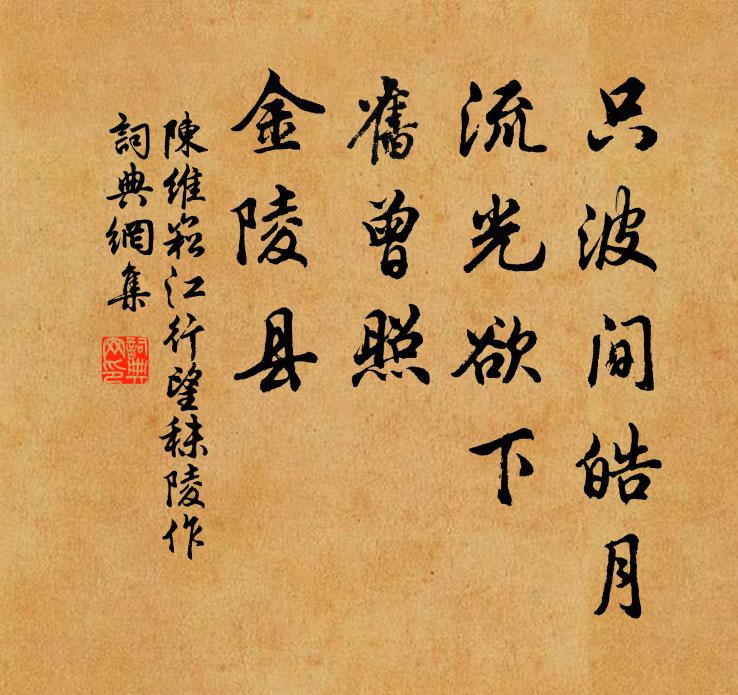 只波间皓月
流光欲下
舊曾照
金陵县
陳維崧江行望秣陵作
詞典網集
詞典網印